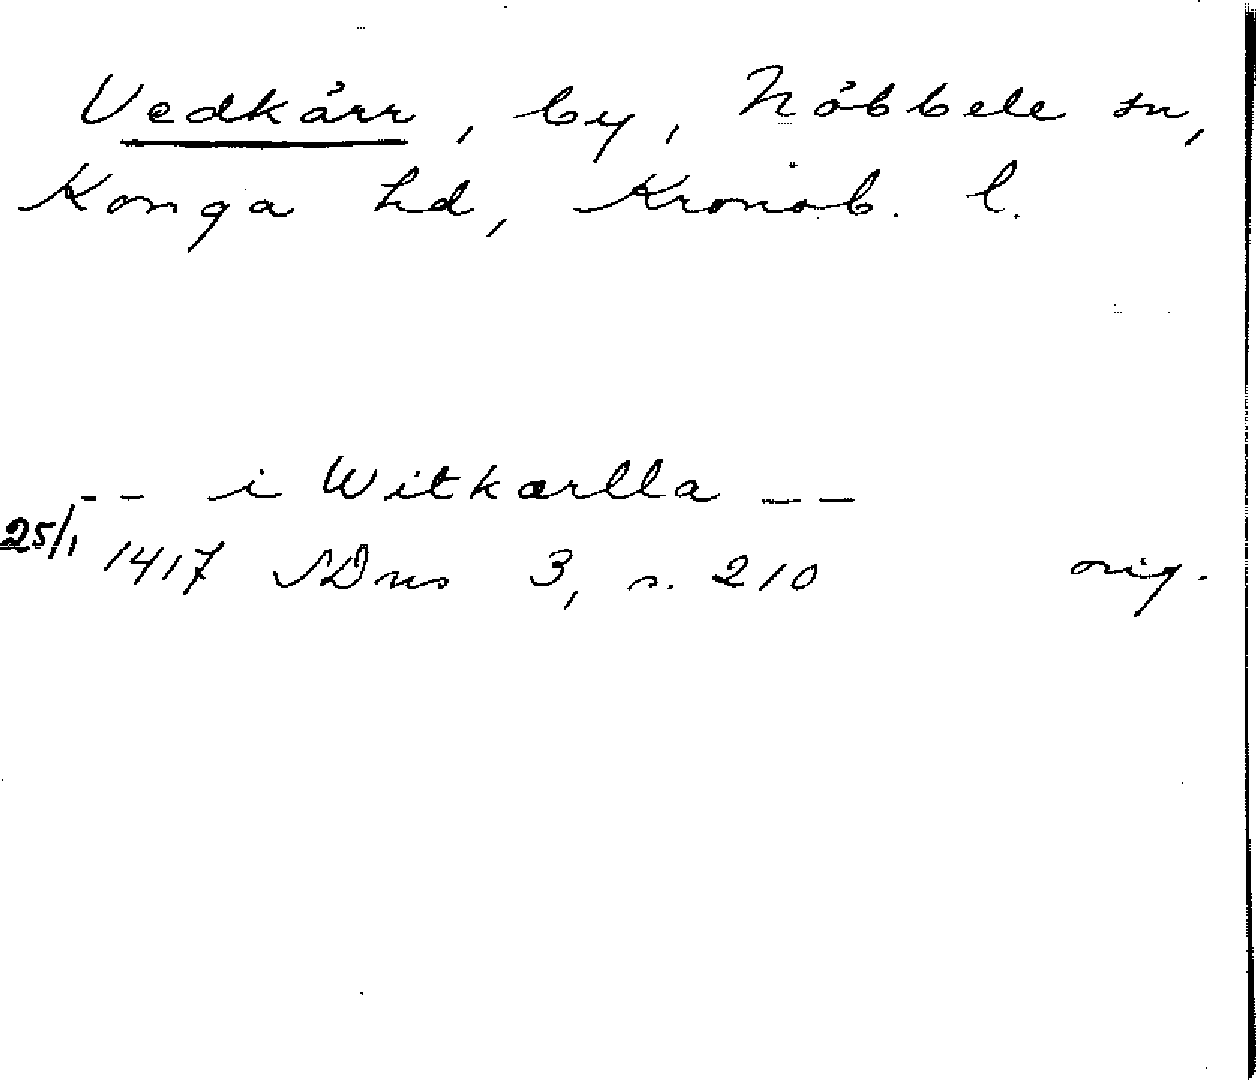 Vedkärr, by, Nöbbele sn,
Konga hd, Kronob. l.
-- i Witkærlla --
25/1 1417 SDns 3, s. 210 orig.